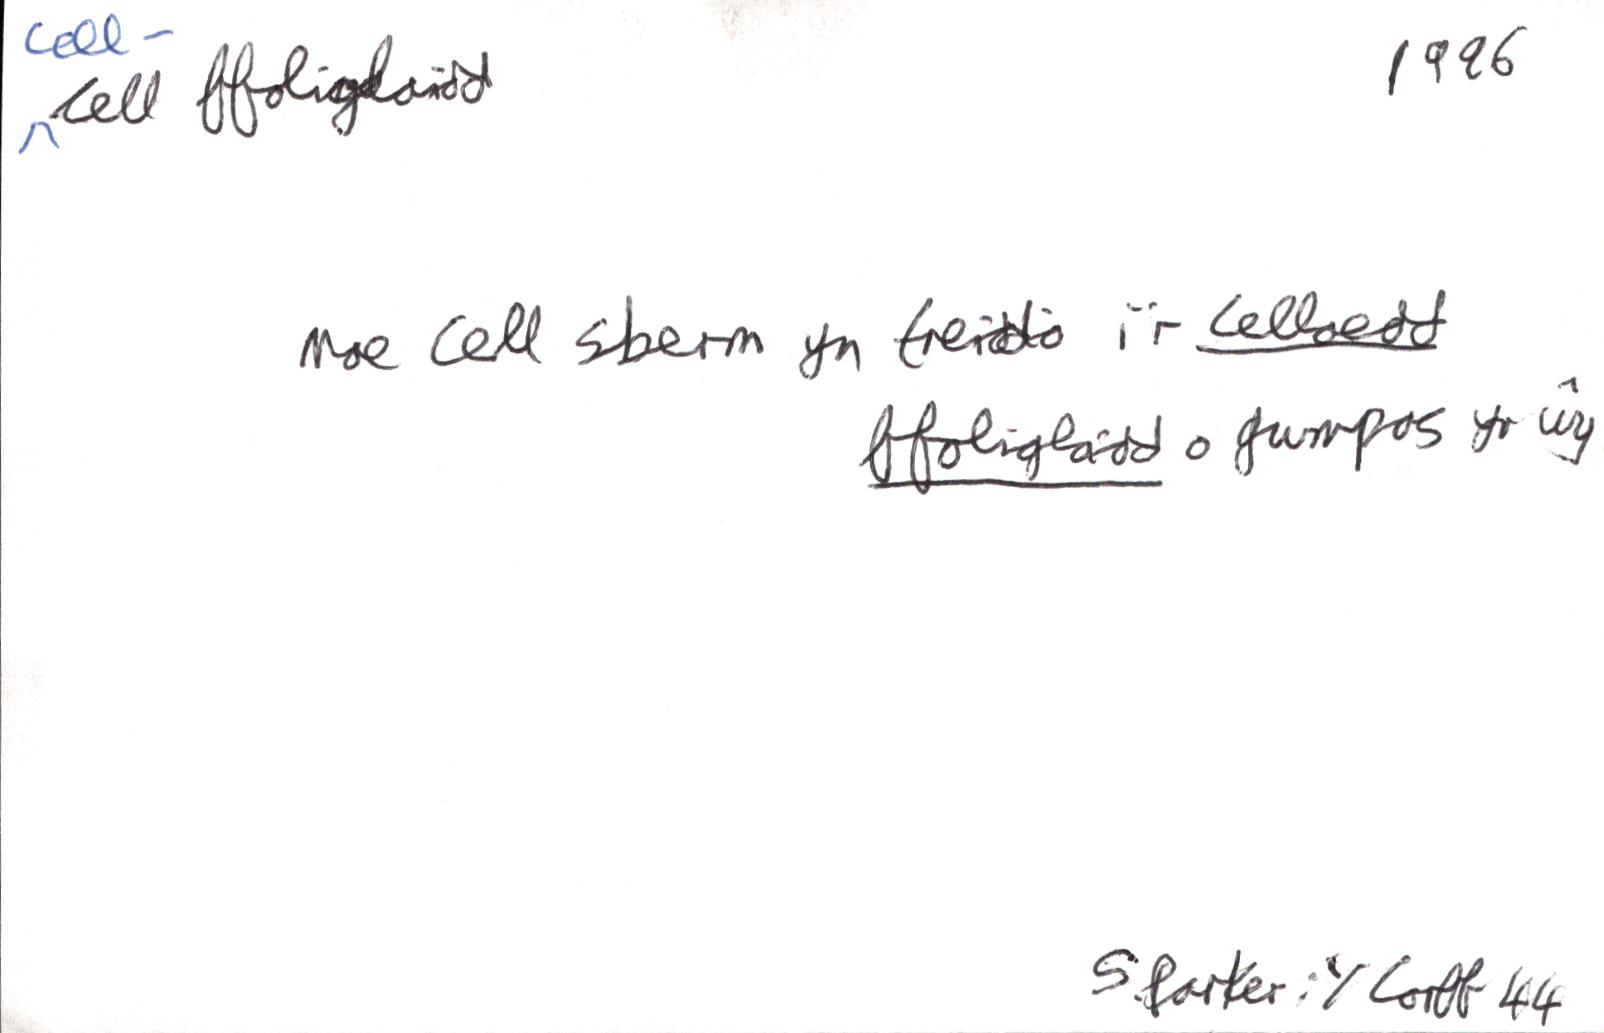 cell -
cell ffoliglaidd
1996
Mae cell sberm yn treiddio i'r celloedd
ffoliglaidd o gwmpas yr ŵy
S. Parker : Y Corff 44